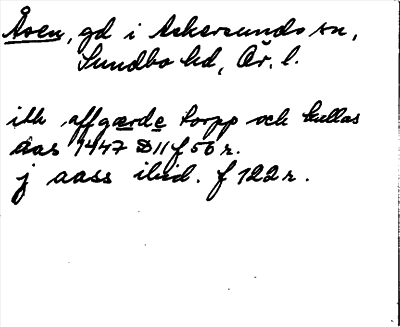 Åsen, gd i Askersunds sn,
Sundbo hd, Ör. l.
itk affgærde torpp och kullas
aas 1447 D11 f 56 r.
j aass ibid. f 122 r.